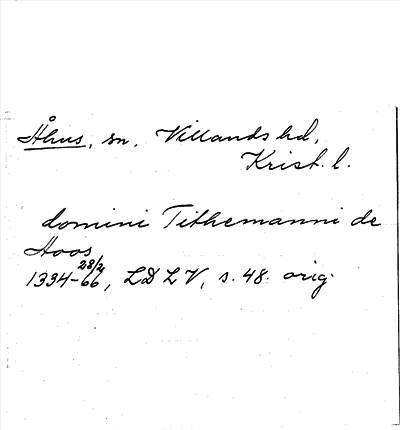 Åhus, sn, Villands hd,
Krist. l.
domini Tithemanni de
Hoos
28/2
1334-66, LDLV, s. 48. orig.